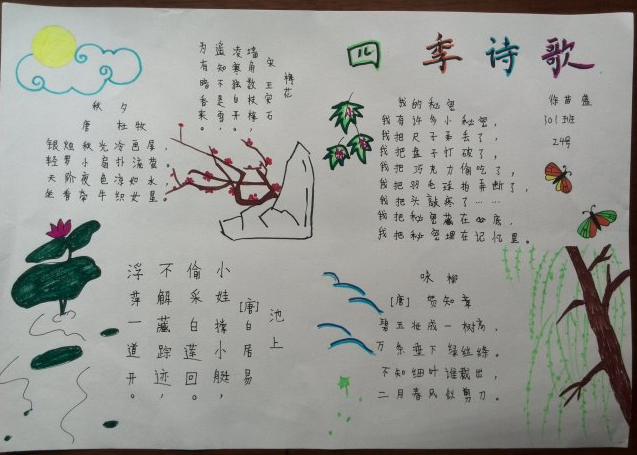 四季诗歌
301班
24号
梅花
宋 王安石
墙角数枝梅，
凌寒独自开。
遥知不是雪，
为有暗香来。
秋夕
唐 杜牧
银烛秋光冷画屏，
轻罗小扇扑流萤。
天阶夜色凉如水，
坐看牵牛织女星。
我的秘密
我有许多小秘密，
我把尺子弄丢了，
我把盘子打破了，
我把巧克力偷吃了，
我把羽毛球拍弄断了，
我把头敲疼了……
我把秘密藏在心底，
我把秘密埋在记忆里。
池上
[唐]白居易
小娃撑小艇，
偷采白莲回。
不解藏踪迹，
浮萍一道开。
咏柳
[唐] 贺知章
碧玉妆成一树高，
万条垂下绿丝绦。
不知细叶谁裁出，
二月春风似剪刀。